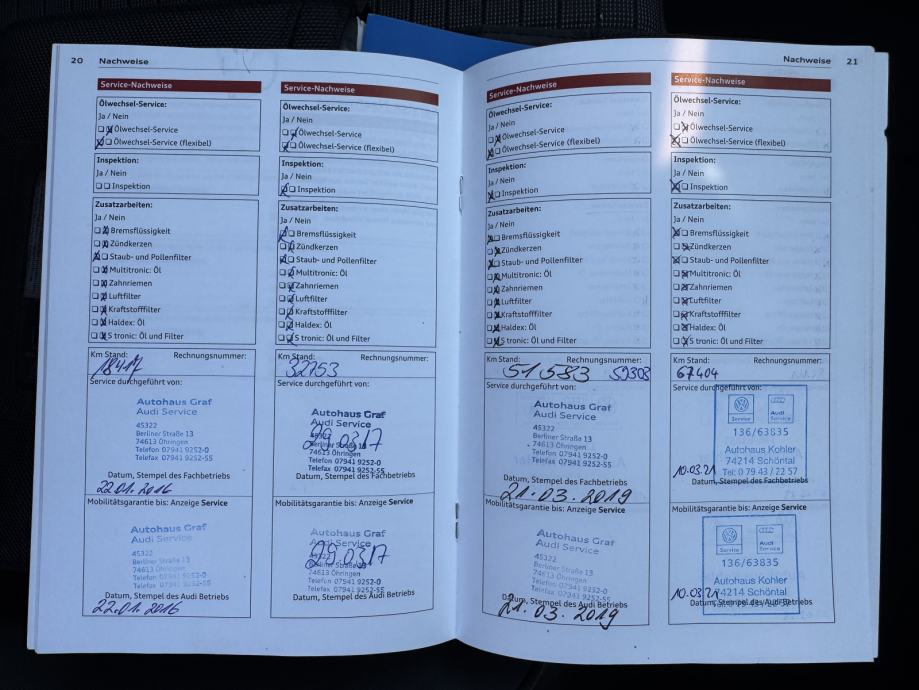 20 Nachweise
Service-Nachweise
Ölwechsel-Service:
Ja / Nein
Ölwechsel-Service
Ölwechsel-Service (flexibel)
Inspektion:
Ja / Nein
Inspektion
Zusatzarbeiten:
Ja / Nein
Bremsflüssigkeit
Zündkerzen
Staub- und Pollenfilter
Multitronic: Öl
Zahnriemen
Luftfilter
Kraftstofffilter
Haldex: Öl
S tronic: Öl und Filter
Km Stand: Rechnungsnummer:
18417
Service durchgeführt von:
Autohaus Graf
Audi Service
45322
Berliner Straße 13
74613 Öhringen
Telefon 07941 9252-0
Telefax 07941 9252-55
Datum, Stempel des Fachbetriebs
22.01.2016
Mobilitätsgarantie bis: Anzeige Service
Autohaus Graf
Audi Service
45322
Berliner Straße 13
74613 Öhringen
Telefon 07941 9252-0
Telefax 07941 9252-55
Datum, Stempel des Audi Betriebs
22.01.2016
Service-Nachweise
Ölwechsel-Service:
Ja / Nein
Ölwechsel-Service
Ölwechsel-Service (flexibel)
Inspektion:
Ja / Nein
Inspektion
Zusatzarbeiten:
Ja / Nein
Bremsflüssigkeit
Zündkerzen
Staub- und Pollenfilter
Multitronic: Öl
Zahnriemen
Luftfilter
Kraftstofffilter
Haldex: Öl
S tronic: Öl und Filter
Km Stand: Rechnungsnummer:
32753
Service durchgeführt von:
Autohaus Graf
Audi Service
45322
Berliner Straße 13
74613 Öhringen
Telefon 07941 9252-0
Telefax 07941 9252-55
Datum, Stempel des Fachbetriebs
Mobilitätsgarantie bis: Anzeige Service
Autohaus Graf
Audi Service
45322
Berliner Straße 13
74613 Öhringen
Telefon 07941 9252-0
Telefax 07941 9252-55
Datum, Stempel des Audi Betriebs
Nachweise 21
Service-Nachweise
Ölwechsel-Service:
Ja / Nein
Ölwechsel-Service
Ölwechsel-Service (flexibel)
Inspektion:
Ja / Nein
Inspektion
Zusatzarbeiten:
Ja / Nein
Bremsflüssigkeit
Zündkerzen
Staub- und Pollenfilter
Multitronic: Öl
Zahnriemen
Luftfilter
Kraftstofffilter
Haldex: Öl
S tronic: Öl und Filter
Km Stand: Rechnungsnummer:
51583 52303
Service durchgeführt von:
Autohaus Graf
Audi Service
45322
Berliner Straße 13
74613 Öhringen
Telefon 07941 9252-0
Telefax 07941 9252-55
Datum, Stempel des Fachbetriebs
21.03.2019
Mobilitätsgarantie bis: Anzeige Service
Autohaus Graf
Audi Service
45322
Berliner Straße 13
74613 Öhringen
Telefon 07941 9252-0
Telefax 07941 9252-55
Datum, Stempel des Audi Betriebs
21.03.2019
Service-Nachweise
Ölwechsel-Service:
Ja / Nein
Ölwechsel-Service
Ölwechsel-Service (flexibel)
Inspektion:
Ja / Nein
Inspektion
Zusatzarbeiten:
Ja / Nein
Bremsflüssigkeit
Zündkerzen
Staub- und Pollenfilter
Multitronic: Öl
Zahnriemen
Luftfilter
Kraftstofffilter
Haldex: Öl
S tronic: Öl und Filter
Km Stand: Rechnungsnummer:
67404
Service durchgeführt von:
Service Audi Service
136/63835
Autohaus Kohler
74214 Schöntal
Tel: 0 79 43 / 22 57
10.03.21
Datum, Stempel des Fachbetriebs
Mobilitätsgarantie bis: Anzeige Service
Service Audi Service
136/63835
Autohaus Kohler
74214 Schöntal
10.03.21
Datum, Stempel des Audi Betriebs